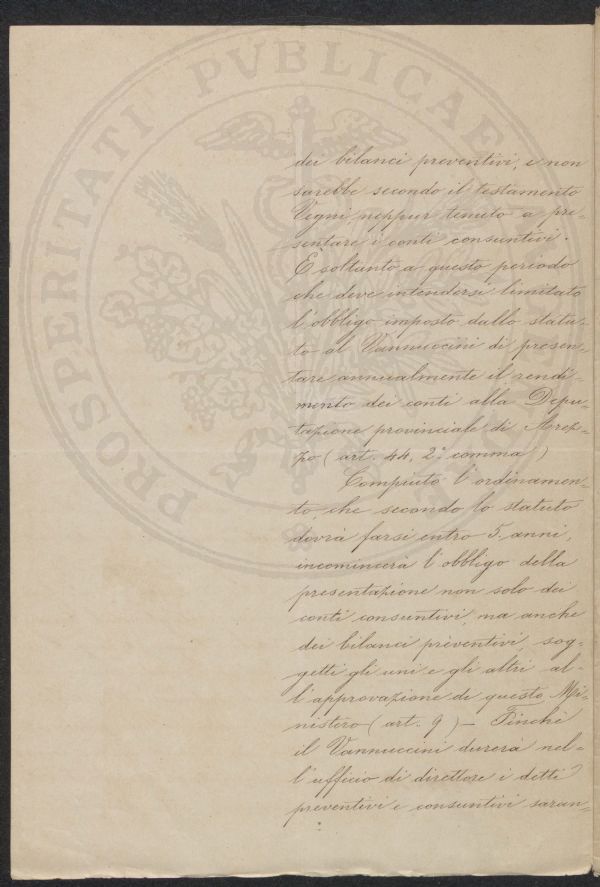 PROSPERITATI PVBLICAE
dei bilanci preventivi, e non
sarebbe secondo il testamento
Vegni neppur tenuto a pre-
sentare i conti consuntivi.
È soltanto a questo periodo
che deve intendersi limitato
l'obbligo imposto dallo statu-
to al Vannuccini di presen-
tare annualmente il rendi-
mento dei conti alla Depu-
tazione provinciale di Arez-
zo (art. 44, 2° comma)
Compiuto l'ordinamen-
to, che secondo lo statuto
dovrà farsi entro 5 anni,
incomincerà l'obbligo della
presentazione non solo dei
conti consuntivi, ma anche
dei bilanci preventivi, sog-
getti gli uni e gli altri al-
l'approvazione di questo Mi-
nistero (art. 9) — Finchè
il Vannuccini durerà nel-
l'ufficio di direttore i detti
preventivi e consuntivi saran-